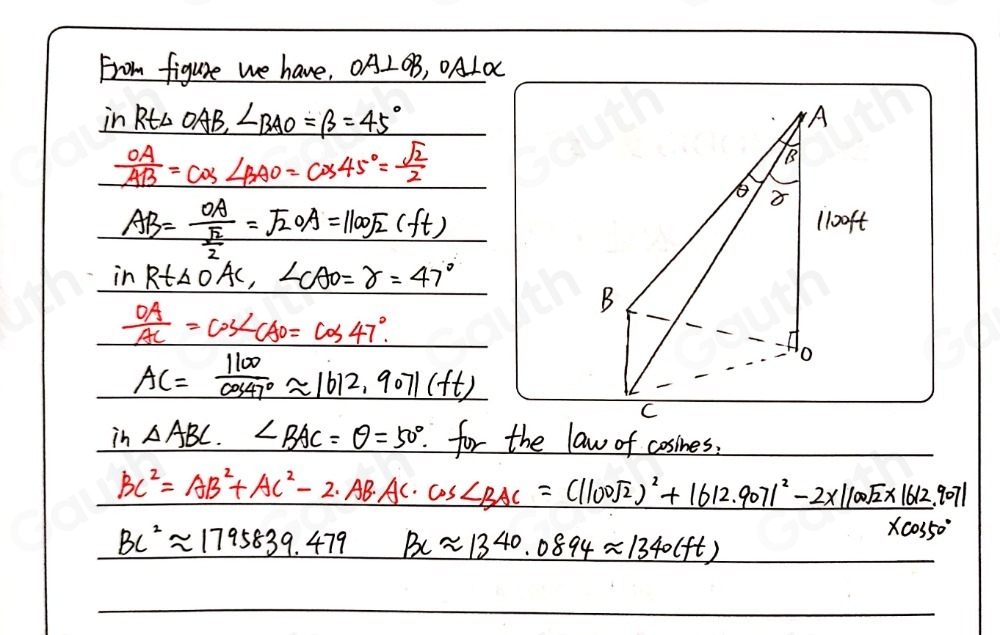 From figure we have, OA⊥OB, OA⊥OC
in Rt△ OAB, ∠BAO = β = 45°
OA/AB = cos ∠BAO = cos45° = √2/2
AB = OA/(√2/2) = √2 OA = 1100√2 (ft)
in Rt△ OAC, ∠CAO = γ = 47°
OA/AC = cos∠CAO = cos 47°.
AC = 1100/cos47° ≈ 1612.9071 (ft)
A
β
θ
γ
1100ft
B
O
C
in △ABC. ∠BAC = θ = 50°. for the law of cosines,
BC² = AB² + AC² - 2·AB·AC·cos∠BAC = (1100√2)² + 1612.9071² - 2×1100√2×1612.9071
×cos50°
BC² ≈ 1795839.479 BC ≈ 1340.0894 ≈ 1340(ft)
Gauth